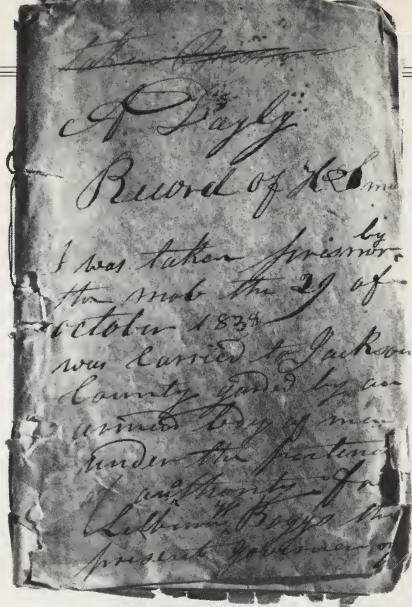 taken
A Dayly
Record of H S
I was taken prisnor by
the mob the 29 of
october 1838
was carried to Jackson
County garded by an
armed body of men
under the pretence
of authority
Lilburn W Boggs the
present governer of